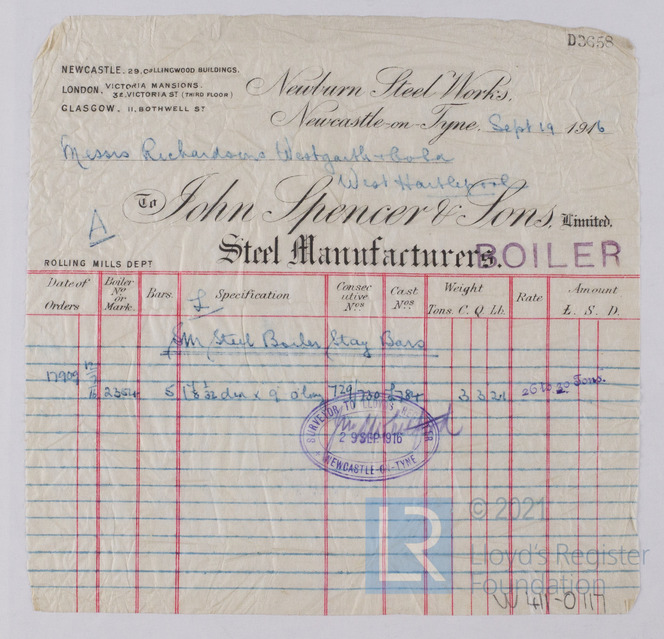 D3658
NEWCASTLE. 29, COLLINGWOOD BUILDINGS.
LONDON. VICTORIA MANSIONS.
32, VICTORIA ST (THIRD FLOOR)
GLASGOW. 11, BOTHWELL ST
Newburn Steel Works,
Newcastle-on-Tyne, Sept 19 1916
Messrs Richardsons Westgarth & Co Ld
West Hartlepool
A
To John Spencer & Sons, Limited.
Steel Manufacturers.
BOILER
ROLLING MILLS DEPT
Date of Orders Boiler No or Mark. Bars. Specification Consecutive Nos Cast Nos. Weight Tons C. Q. Lb. Rate Amount £. S. D.
SM Steel Boiler Stay Bars
17909 2354 5 dia x 9' 0 long 729/730 3 3 21 26 to 30 Tons.
SURVEYOR TO LLOYD'S REGISTER
29 SEP 1916
NEWCASTLE-ON-TYNE
LR
© 2021
Lloyd's Register
Foundation
W 411-0117